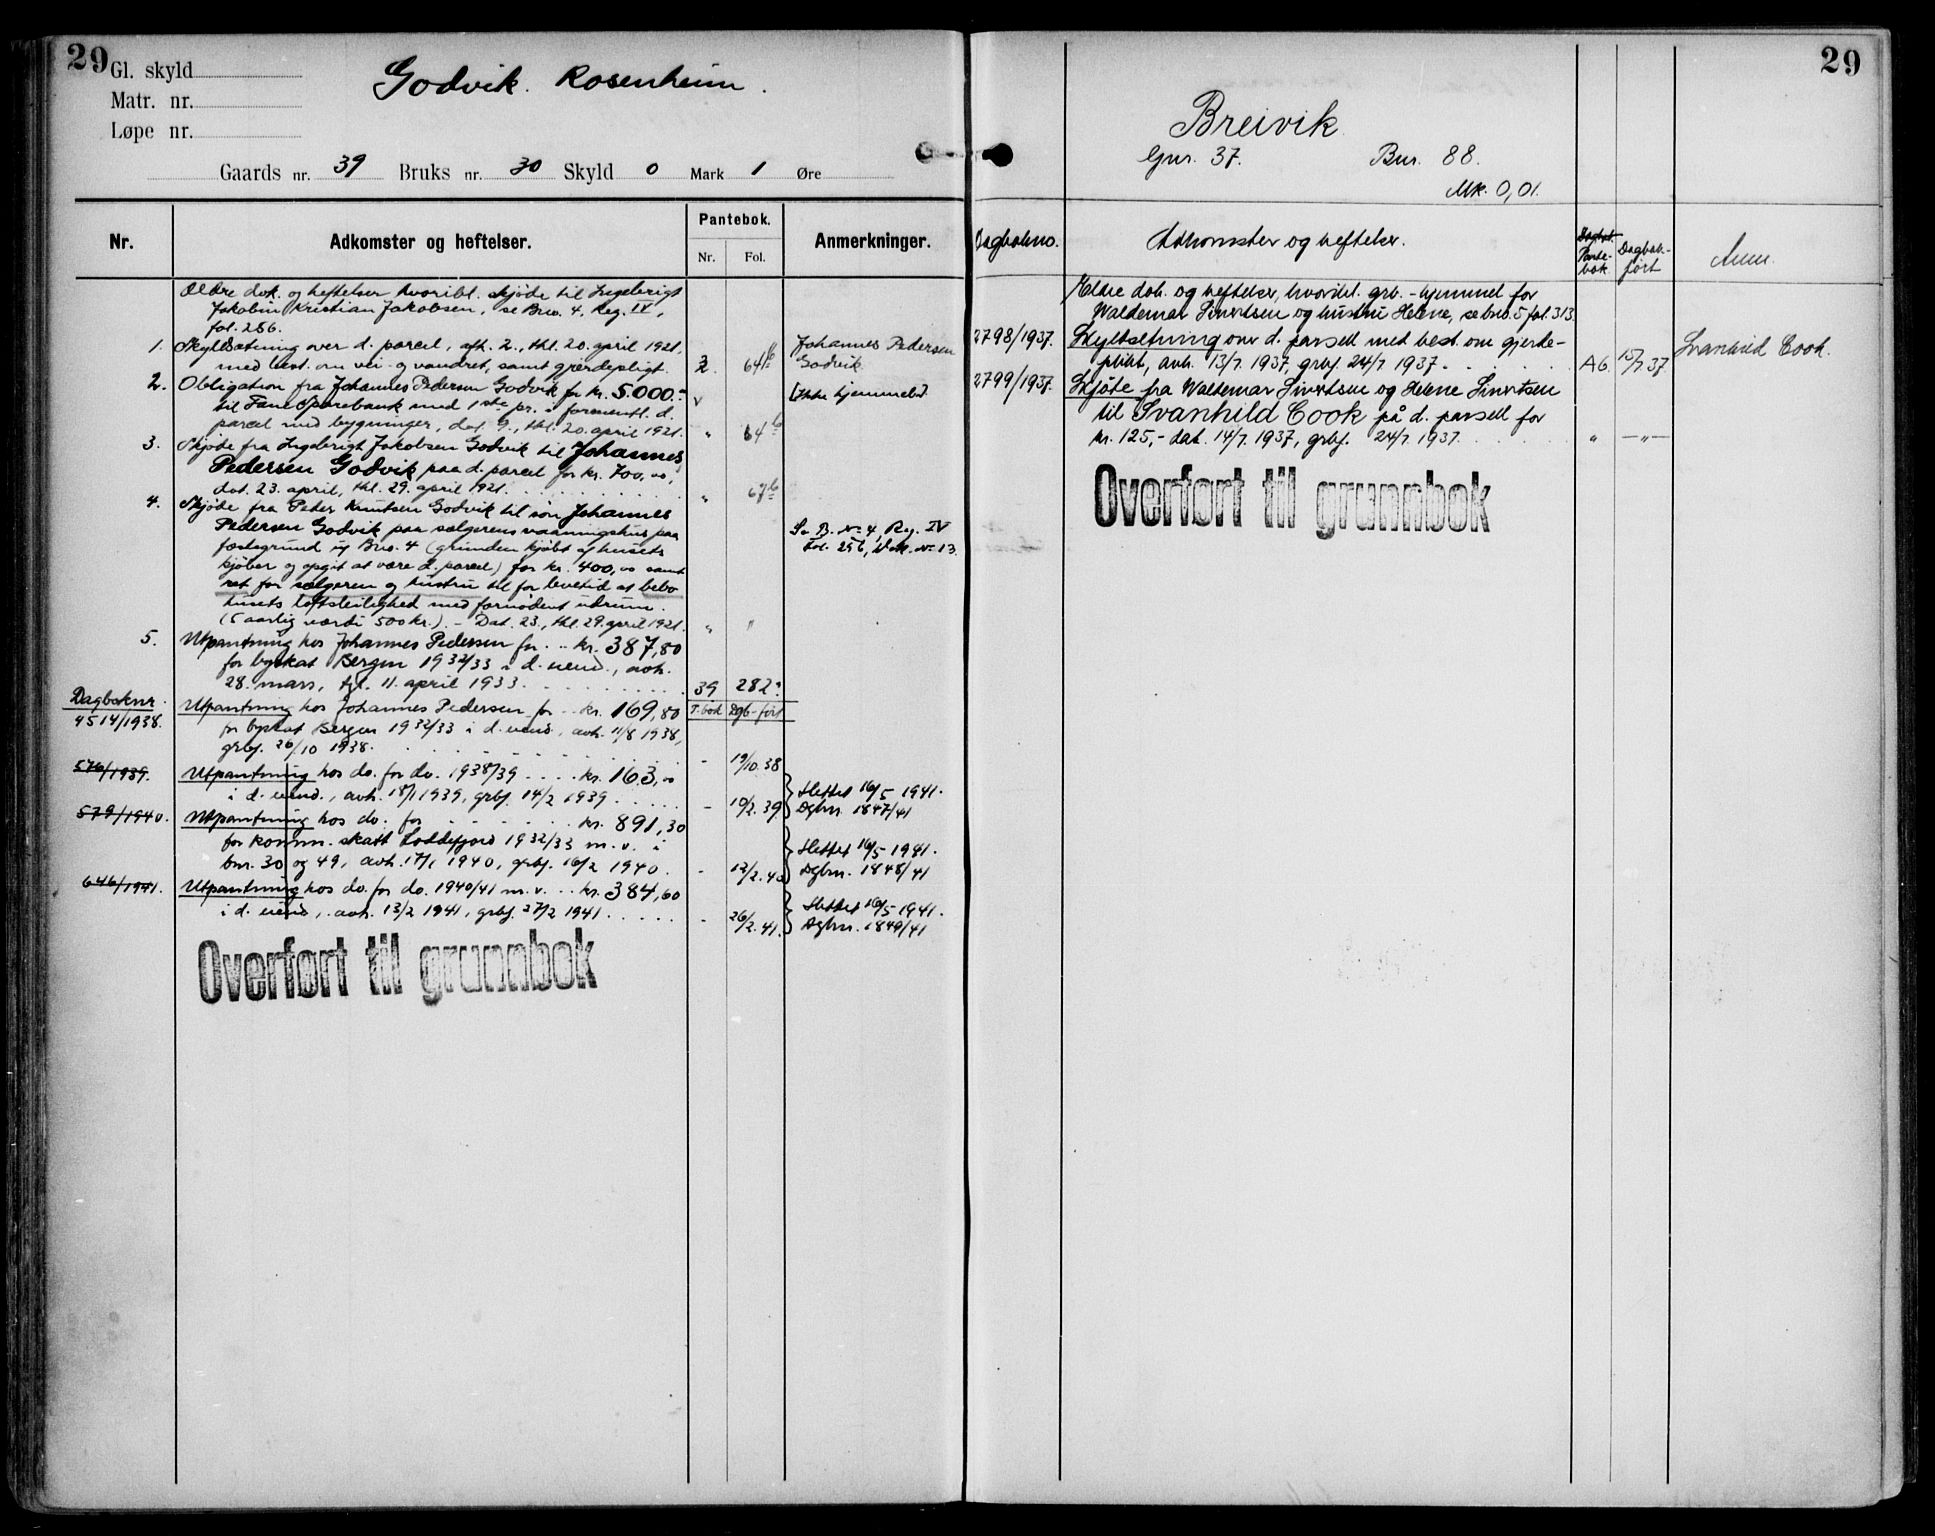 29
Gl. skyld
Matr. nr.
Løpe nr.
Godvik. Rosenheim.
Gaards nr. 39 Bruks nr. 30 Skyld 0 Mark 1 Øre
Nr.
Adkomster og heftelser.
Pantebok.
Nr. Fol.
Anmerkninger.
Ældre dok. og heftelser hvoribl. skjøde til Ingebrigt
Jakobin Kristian Jakobsen, se Bno. 4, Reg. IV,
fol. 256.
1. Skyldsætning over d. parcel, afh. 2., thl. 20. april 1921,
med best. om vei- og vandret, samt gjerdepligt. 2 64b
Johannes Pedersen
Godvik
2. Obligation fra Johannes Pedersen Godvik for kr. 5000.-
til Fane Sparebank med 1ste pr. i forannevnte d.
parcel med bygninger, dat. 9., thl. 20. april 1921. " 64b
[Ikke hjemmelsh.
3. Skjøde fra Ingebrigt Jakobsen Godvik til Johannes
Pedersen Godvik paa d. parcel for kr. 700,00,
dat. 23. april, thl. 29. april 1921. " 67b
4. Skjøde fra Peder Knutsen Godvik til søn Johannes
Pedersen Godvik paa sælgerens vaaningshus paa
festegrund ig Bno. 4 (grunden kjøbt af husets
kjøber og opgit at være d. parcel) for kr. 400,00 samt
ret for sælgeren og hustru til for levetid at bebo
husets loftsleilighed med fornødent uthusrum.
(5 aarlig værdi 500 kr.). - Dat. 23., thl. 29. april 1921. " "
Se B. No 4, Reg. IV
Fol. 256, Dok. No 13.
5. Utpantning hos Johannes Pedersen for .. kr. 387,80
for byskat Bergen 1932/33 i d. eiend., avh.
28. mars, tgl. 11. april 1933. 39 282a
Dagboknr. P.bok Dgb-ført
4514/1938. Utpantning hos Johannes Pedersen for .. kr. 169,80
for byskat Bergen 1932/33 i d. eiend., avh. 11/8 1938,
grbf. 26/10 1938. - 19/10.38
576/1939. Utpantning hos do. for do. 1938/39 .... kr. 163,00
i d. eiend., avh. 18/1 1939, grbf. 14/2 1939. - 10/2.39
Slettet 16/5 1941.
Dgbnr. 1847/41
579/1940. Utpantning hos do. for kr. 891,30
for komm. skatt Loddefjord 1932/33 m.v. i
bnr. 30 og 49, avh. 17/1 1940, grbf. 16/2 1940. - 12/2.40
Slettet 16/5 1941.
Dgbnr. 1848/41
646/1941. Utpantning hos do. for do. 1940/41 m.v. .. kr. 384,60
i d. eiend., avh. 13/2 1941, grbf. 27/2 1941. - 26/2.41.
Slettet 16/5 1941.
Dgbnr. 1849/41
Overført til grunnbok
29
Breivik
Gnr. 37. Bnr. 88.
Mk. 0,01.
Dagbokno.
Adkomster og heftelser.
Dagbok.
Pante-
bok
Dagbok-
ført
Anm.
Ældre dok. og heftelser, hvoribl. grb.-hjemmel for
Waldemar Sivertsen og hustru Helene, se bno. 5 fol. 313.
2798/1937. Skyldsetning over d. parsell med best. om gjerde-
plikt, avh. 13/7 1937, grbf. 24/7 1937. A6. 15/7.37
Svanhild Cook.
2799/1937. Skjøte fra Waldemar Sivertsen og Helene Sivertsen
til Svanhild Cook på d. parsell for
kr. 125,- dat. 14/7 1937, grbf. 24/7 1937. " -"-
Overført til grunnbok